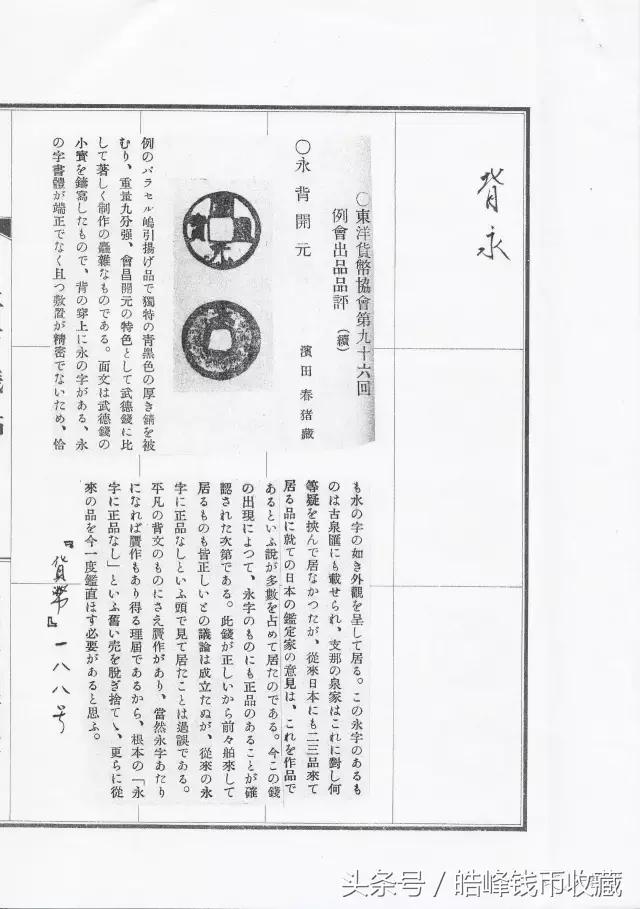 背永
○東洋貨幣協會第九十六回
例會出品品評（續）
○永背開元
濱田春猪藏
例のパラセル嶋引揚げ品で獨特の青黑色の厚き錆を被
むり、重量九分强、會昌開元の特色として武德錢に比
して著しく制作の麤雜なものである。面文は武德錢の
小實を鑄寫したもので、背の穿上に永の字がある、永
の字書體が端正でなく且つ敷置が精密でないため、恰
も水の字の如き外觀を呈して居る。この永字のあるも
のは古泉匯にも載せられ、支那の泉家はこれに對し何
等疑を挾んで居なかつたが、從來日本にも二三品來て
居る品に就ての日本の鑑定家の意見は、これを作品で
あるといふ說が多數を占めて居たのである。今この錢
の出現によつて、永字のものにも正品のあることが確
認された次第である。此錢が正しいから前々舶來して
居るものも皆正しいとの議論は成立たぬが、從來の永
字に正品なしといふ頭で見て居たことは過誤である。
平凡の背文のものにさえ贋作があり、當然永字あたり
になれば贋作もあり得る理屈であるから、根本の「永
字に正品なし」といふ舊い売を脫ぎ捨てゝ、更らに從
來の品を今一度鑑直はす必要があると思ふ。
『貨幣』一八八号
头条号/皓峰钱币收藏